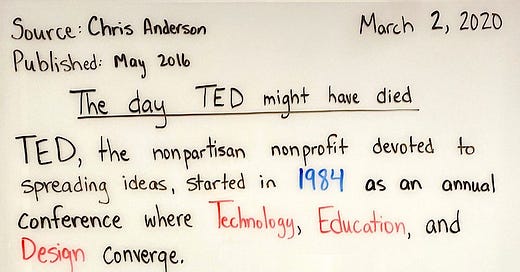 Source: Chris Anderson March 2, 2020
Published: May 2016
The day TED might have died
TED, the nonpartisan nonprofit devoted to
spreading ideas, started in 1984 as an annual
conference where Technology, Education, and
Design converge.